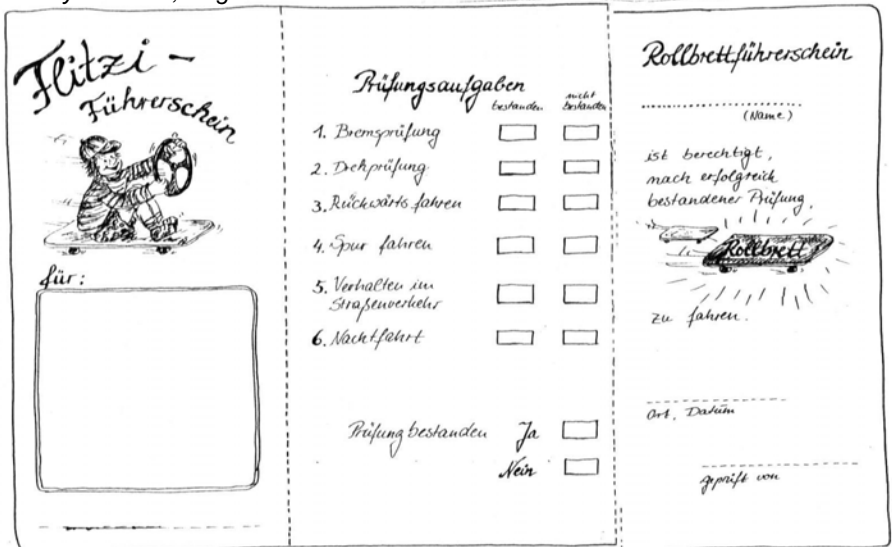 Flitzi -
Führerschein
für:
Prüfungsaufgaben
bestanden
nicht
bestanden
1. Bremsprüfung
2. Drehprüfung
3. Rückwärts fahren
4. Spur fahren
5. Verhalten im
Straßenverkehr
6. Nachtfahrt
Prüfung bestanden Ja
Nein
Rollbrettführerschein
(Name)
ist berechtigt,
nach erfolgreich
bestandener Prüfung,
Rollbrett
zu fahren.
Ort, Datum
geprüft von